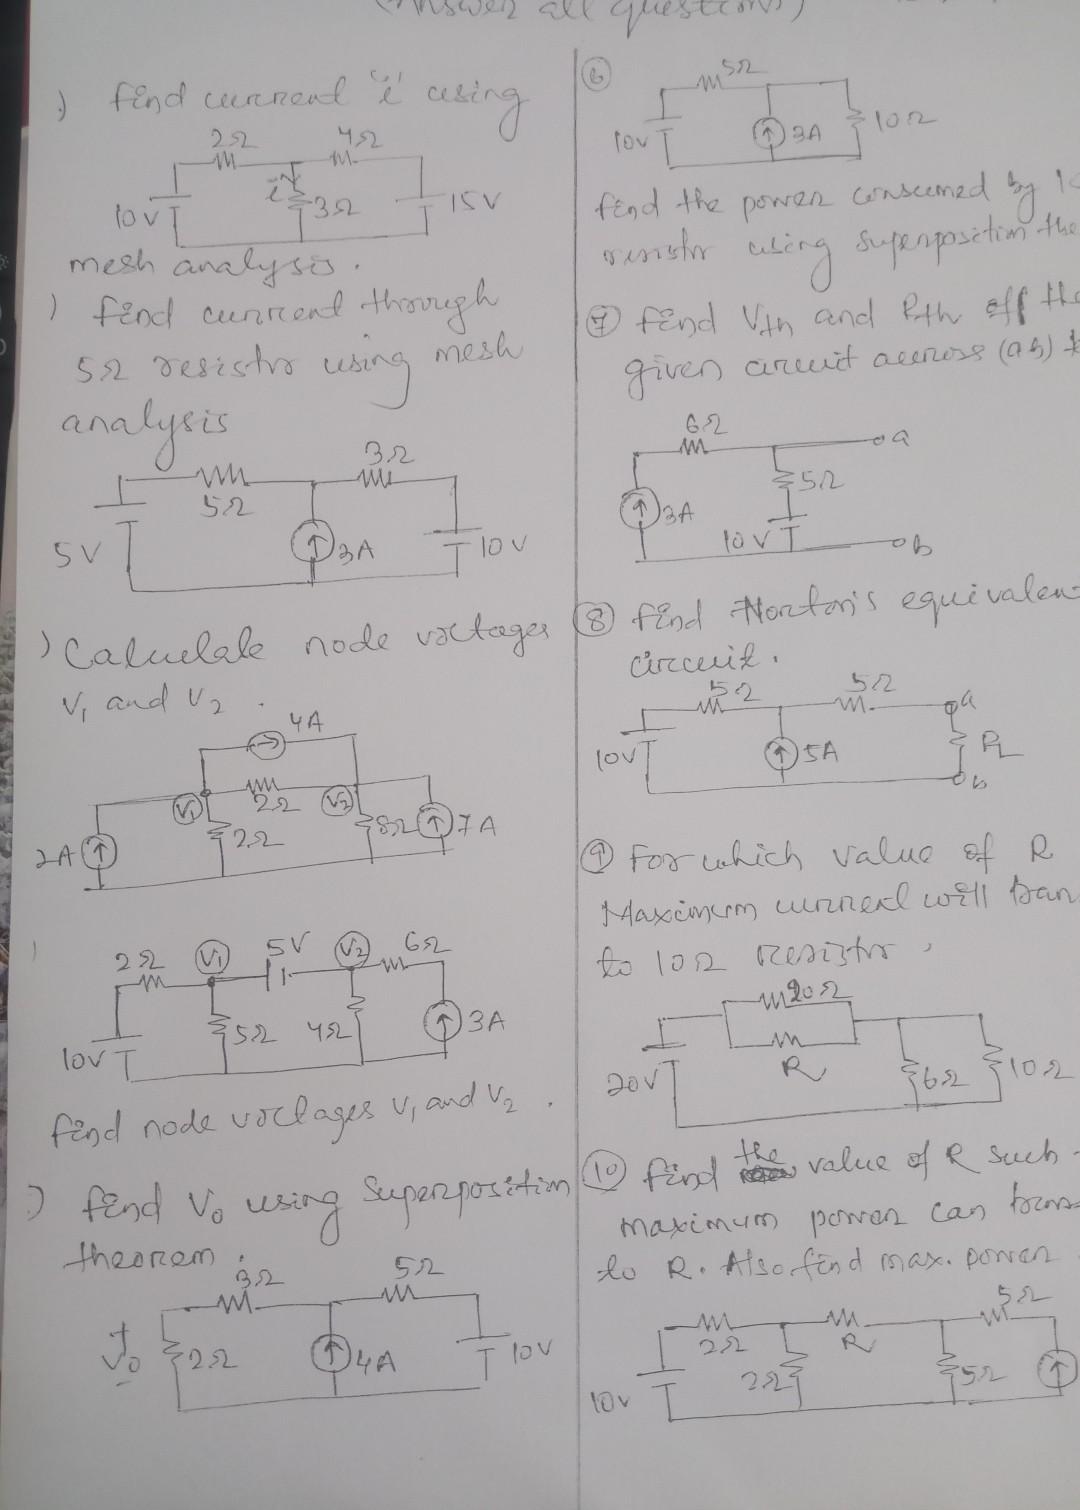 (Answer all questions)
) find current "i" using
2Ω 4Ω
10V i 3Ω 15V
mesh analysis.
) find current through
5Ω resistor using mesh
analysis
3Ω
5Ω
5V 3A 10V
) Calculate node voltages
V1 and V2.
4A
V1 2Ω V2
2A 2Ω 8Ω 7A
2Ω V1 5V V2 6Ω
10V 5Ω 4Ω 3A
find node voltages V1 and V2.
) find Vo using Superposition
theorem.
3Ω 5Ω
+
Vo 2Ω 4A 10V
-
⑥ 5Ω
10V 3A 10Ω
find the power consumed by
resistor using superposition
⑦ find Vth and Rth off
given circuit across (ab)
6Ω a
5Ω
3A
10V b
⑧ find Norton's
circuit.
5Ω 5Ω a
10V 5A RL
b
⑨ For which value of R
Maximum current will
to 10Ω resistor,
20Ω
R
20V 6Ω 10Ω
⑩ find the value of R such
maximum power can
to R. Also find max. power
5Ω
2Ω R
10V 2Ω 5Ω